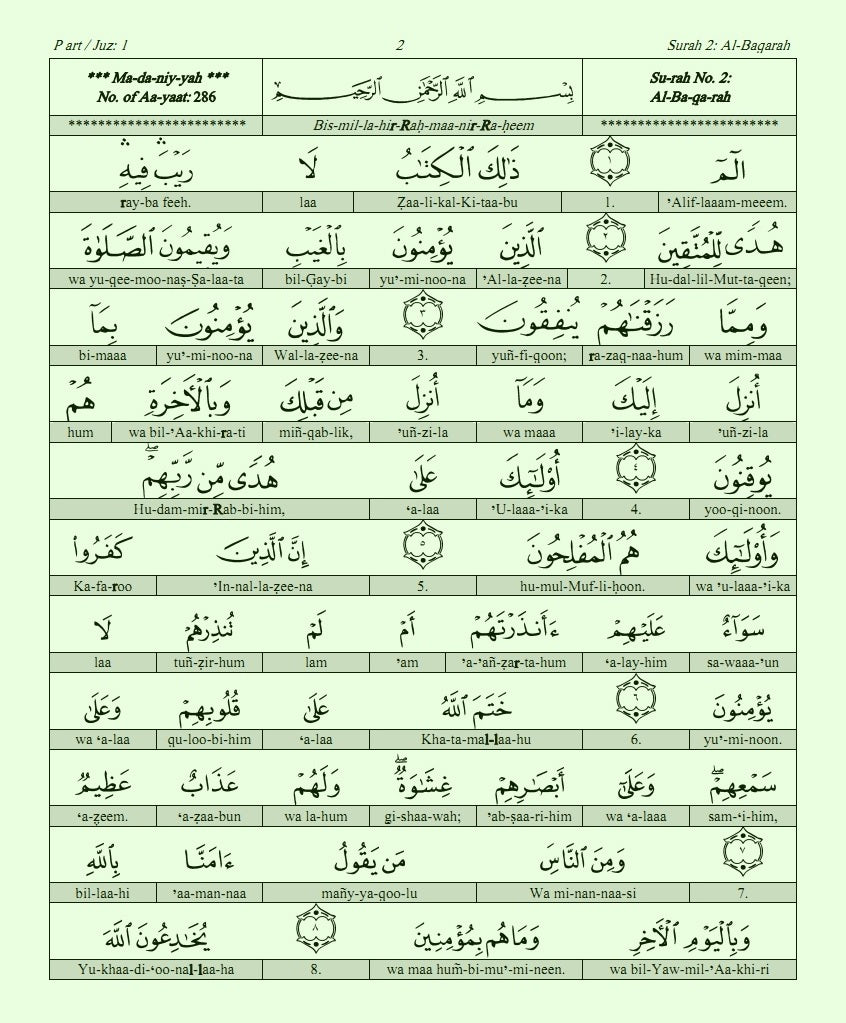 Part / Juz: 1 2 Surah 2: Al-Baqarah
*** Ma-da-niy-yah *** بِسْمِ ٱللَّهِ ٱلرَّحْمَٰنِ ٱلرَّحِيمِ Su-rah No. 2:
No. of Aa-yaat: 286 Al-Ba-qa-rah
************************ Bis-mil-la-hir-Raḥ-maa-nir-Ra-ḥeem ************************
الٓمٓ ١ ذَٰلِكَ ٱلْكِتَٰبُ لَا رَيْبَۛ فِيهِۛ
’Alif-laaam-meeem. 1. Ẓaa-li-kal-Ki-taa-bu laa ray-ba feeh.
هُدًى لِّلْمُتَّقِينَ ٢ ٱلَّذِينَ يُؤْمِنُونَ بِٱلْغَيْبِ وَيُقِيمُونَ ٱلصَّلَوٰةَ
Hu-dal-lil-Mut-ta-qeen; 2. ’Al-la-ẓee-na yu’-mi-noo-na bil-G̣ay-bi wa yu-qee-moo-naṣ-Ṣa-laa-ta
وَمِمَّا رَزَقْنَٰهُمْ يُنفِقُونَ ٣ وَٱلَّذِينَ يُؤْمِنُونَ بِمَآ
wa mim-maa ra-zaq-naa-hum yuñ-fi-qoon; 3. Wal-la-ẓee-na yu’-mi-noo-na bi-maaa
أُنزِلَ إِلَيْكَ وَمَآ أُنزِلَ مِن قَبْلِكَ وَبِٱلْأَخِرَةِ هُمْ
’uñ-zi-la ’i-lay-ka wa maaa ’uñ-zi-la miñ-qab-lik, wa bil-’Aa-khi-ra-ti hum
يُوقِنُونَ ٤ أُو۟لَٰٓئِكَ عَلَىٰ هُدًى مِّن رَّبِّهِمْۖ
yoo-qi-noon. 4. ’U-laaa-’i-ka ‘a-laa Hu-dam-mir-Rab-bi-him,
وَأُو۟لَٰٓئِكَ هُمُ ٱلْمُفْلِحُونَ ٥ إِنَّ ٱلَّذِينَ كَفَرُوا۟
wa ’u-laaa-’i-ka hu-mul-Muf-li-ḥoon. 5. ’In-nal-la-ẓee-na Ka-fa-roo
سَوَآءٌ عَلَيْهِمْ ءَأَنذَرْتَهُمْ أَمْ لَمْ تُنذِرْهُمْ لَا
sa-waaa-’un ‘a-lay-him ’a-’añ-ẓar-ta-hum ’am lam tuñ-ẓir-hum laa
يُؤْمِنُونَ ٦ خَتَمَ ٱللَّهُ عَلَىٰ قُلُوبِهِمْ وَعَلَىٰ
yu’-mi-noon. 6. Kha-ta-mal-laa-hu ‘a-laa qu-loo-bi-him wa ‘a-laa
سَمْعِهِمْۖ وَعَلَىٰٓ أَبْصَٰرِهِمْ غِشَٰوَةٌۖ وَلَهُمْ عَذَابٌ عَظِيمٌ
sam-‘i-him, wa ‘a-laaa ’ab-ṣaa-ri-him g̣i-shaa-wah; wa la-hum ‘a-ẓaa-bun ‘a-ẓeem.
٧ وَمِنَ ٱلنَّاسِ مَن يَقُولُ ءَامَنَّا بِٱللَّهِ
7. Wa mi-nan-naa-si mañy-ya-qoo-lu ’aa-man-naa bil-laa-hi
وَبِٱلْيَوْمِ ٱلْأَخِرِ وَمَا هُم بِمُؤْمِنِينَ ٨ يُخَٰدِعُونَ ٱللَّهَ
wa bil-Yaw-mil-’Aa-khi-ri wa maa hum̃-bi-mu’-mi-neen. 8. Yu-khaa-di-‘oo-nal-laa-ha